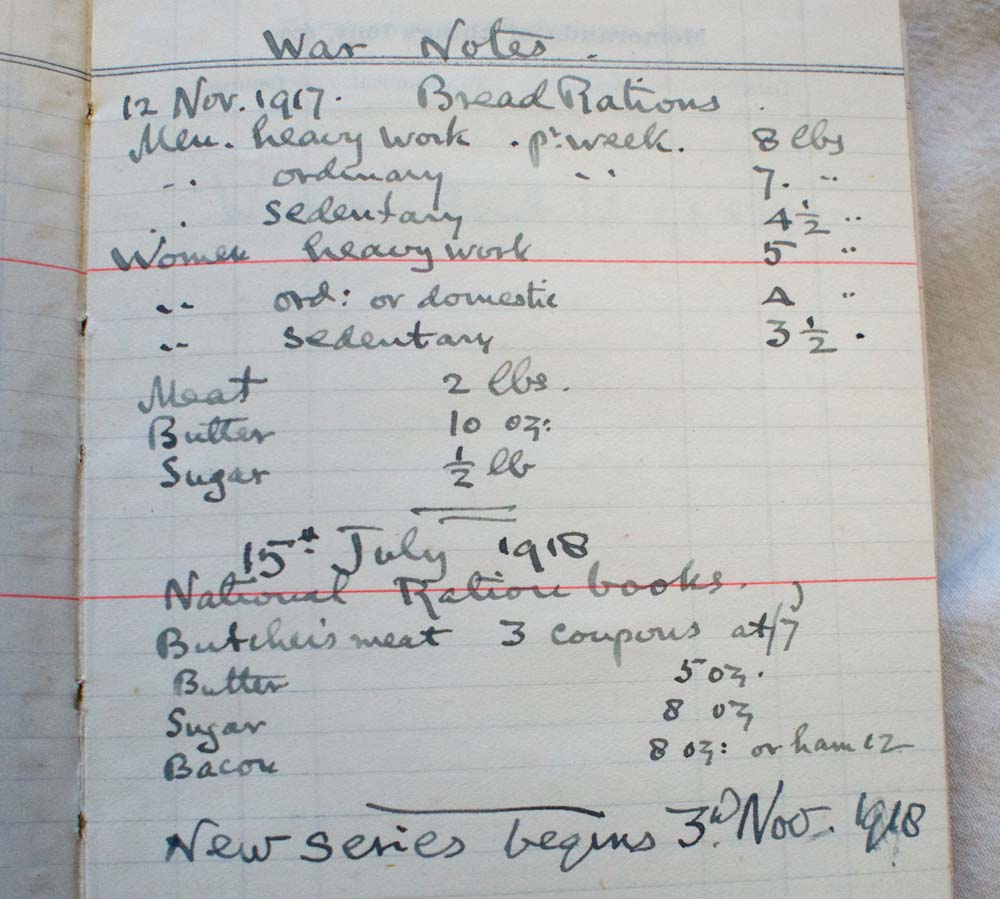 War Notes.
12 Nov. 1917. Bread Rations.
Men. heavy work . pr. week. 8 lbs
" ordinary " 7. "
" sedentary 4½ "
Women heavy work 5 "
" ord: or domestic 4 "
" sedentary 3½ .
Meat 2 lbs.
Butter 10 oz:
Sugar ½ lb
15th July 1918
National Ration books.
Butcher's meat 3 coupons at /7
Butter 5 oz.
Sugar 8 oz
Bacon 8 oz: or ham 12
New series begins 3rd Nov. 1918